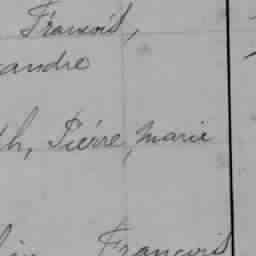 François,
andre
th, Pierre, Marie
François